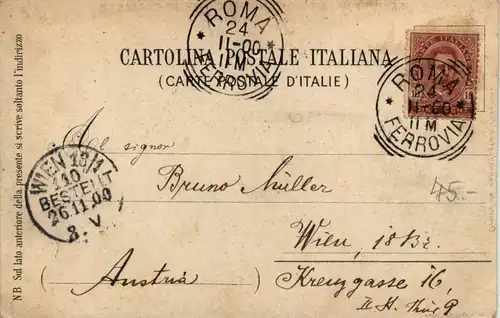 ROMA
24
11-00
11 M
FERROVIA
CARTOLINA POSTALE ITALIANA
(CARTE POSTALE D'ITALIE)
ROMA
24
11-00
11 M
FERROVIA
N B Sul lato anteriore della presente si scrive soltanto l'indirizzo
Al signor
Bruno Müller
WIEN 18/1
110
BESTELLT
26.11.00
8. V
45.-
Wien, 18
(Austria)
Kreuzgasse 16,
II St. Thür 9